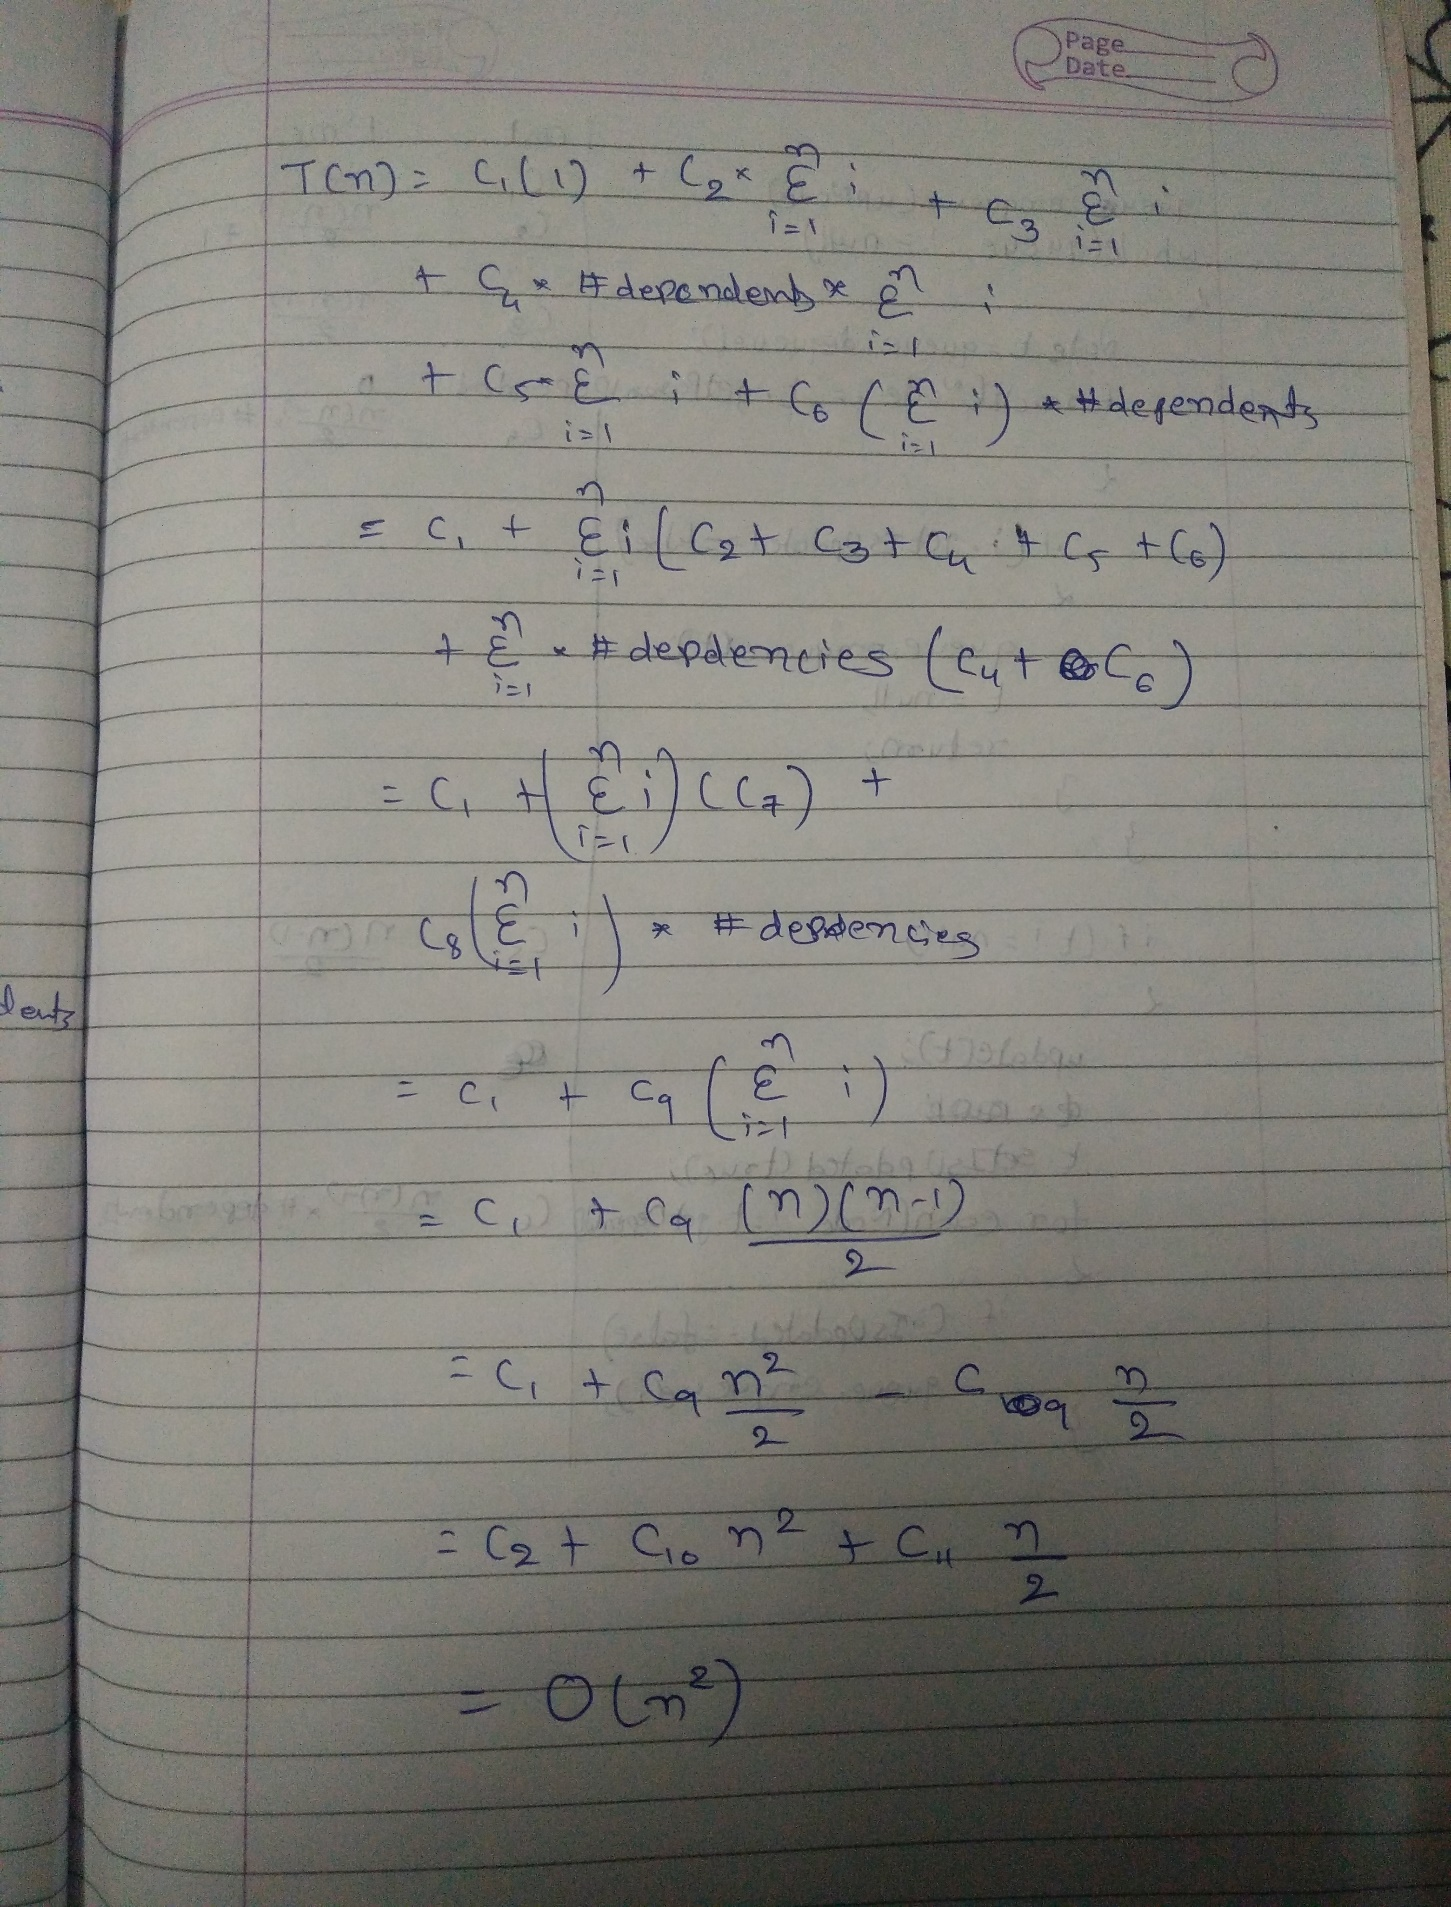 Page
Date
T(n) = C₁(1) + C₂ * Σⁿᵢ₌₁ i + C₃ Σⁿᵢ₌₁ i
+ C₄ * #dependents * Σⁿᵢ₌₁ i
+ C₅ * Σⁿᵢ₌₁ i + C₆ (Σⁿᵢ₌₁ i) * #dependents
= C₁ + Σⁿᵢ₌₁ i (C₂ + C₃ + C₄ + C₅ + C₆)
+ Σⁿᵢ₌₁ * #depdencies (C₄ + C₆)
= C₁ + (Σⁿᵢ₌₁ i) (C₇) +
C₈ (Σⁿᵢ₌₁ i) * #depdencies
dents
= C₁ + C₉ (Σⁿᵢ₌₁ i)
= C₁ + C₉ (n)(n-1)/2
= C₁ + C₉ n²/2 - C₉ n/2
= C₂ + C₁₀ n² + C₁₁ n/2
= O(n²)